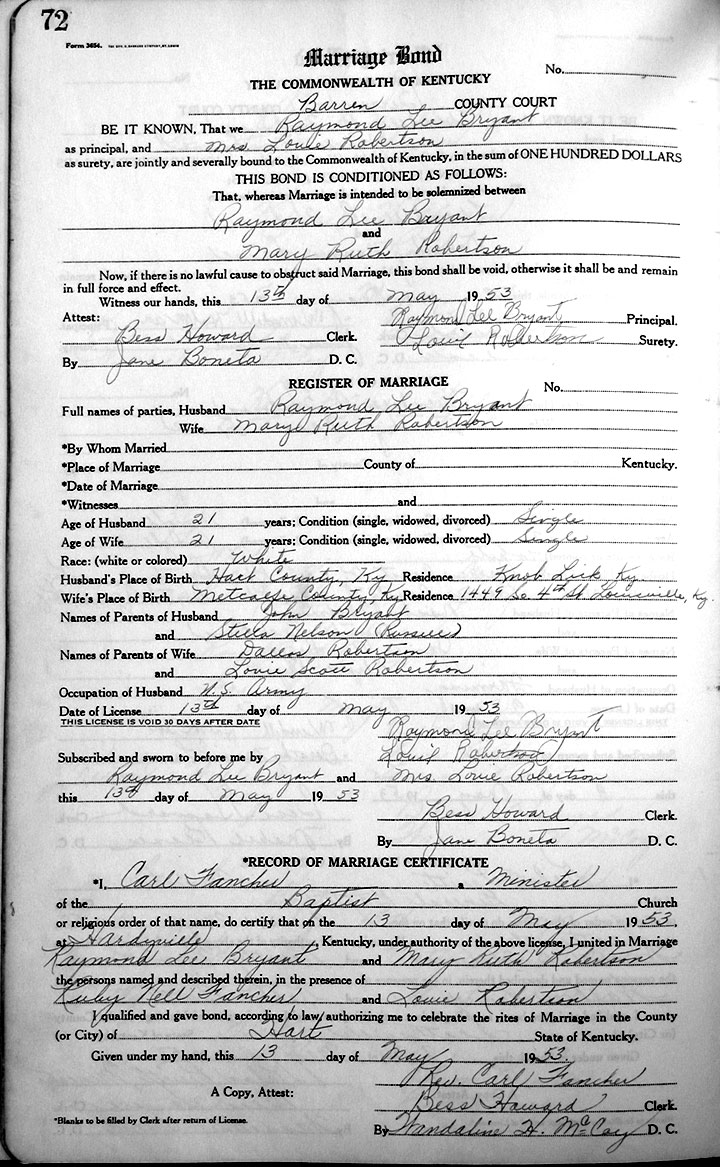 72
Form 3654.
Marriage Bond
No.
THE COMMONWEALTH OF KENTUCKY
Barren COUNTY COURT
BE IT KNOWN, That we Raymond Lee Bryant
as principal, and Mrs. Louie Robertson
as surety, are jointly and severally bound to the Commonwealth of Kentucky, in the sum of ONE HUNDRED DOLLARS
THIS BOND IS CONDITIONED AS FOLLOWS:
That, whereas Marriage is intended to be solemnized between
Raymond Lee Bryant
and
Mary Ruth Robertson
Now, if there is no lawful cause to obstruct said Marriage, this bond shall be void, otherwise it shall be and remain
in full force and effect.
Witness our hands, this 13th day of May 1953
Attest: Raymond Lee Bryant Principal.
Bess Howard Clerk. Louie Robertson Surety.
By Jane Boneta D. C.
REGISTER OF MARRIAGE
No.
Full names of parties, Husband Raymond Lee Bryant
Wife Mary Ruth Robertson
*By Whom Married
*Place of Marriage County of Kentucky.
*Date of Marriage
*Witnesses and
Age of Husband 21 years; Condition (single, widowed, divorced) Single
Age of Wife 21 years; Condition (single, widowed, divorced) Single
Race: (white or colored) White
Husband's Place of Birth Hart County, Ky Residence Knob Lick, Ky.
Wife's Place of Birth Metcalfe County, Ky Residence 1449 So. 4th St. Louisville, Ky.
Names of Parents of Husband John Bryant
and Stella Nelson (Russell)
Names of Parents of Wife Dallas Robertson
and Louie Scott Robertson
Occupation of Husband U.S. Army
Date of License 13th day of May 1953
THIS LICENSE IS VOID 30 DAYS AFTER DATE
Raymond Lee Bryant
Subscribed and sworn to before me by Louie Robertson
Raymond Lee Bryant and Mrs. Louie Robertson
this 13th day of May 1953
Bess Howard Clerk.
By Jane Boneta D. C.
*RECORD OF MARRIAGE CERTIFICATE
*I, Carl Fancher a Minister
of the Baptist Church
or religious order of that name, do certify that on the 13 day of May 1953,
at Hardyville, Kentucky, under authority of the above license, I united in Marriage
Raymond Lee Bryant and Mary Ruth Robertson
the persons named and described therein, in the presence of
Ruby Nell Fancher and Louie Robertson
I qualified and gave bond, according to law, authorizing me to celebrate the rites of Marriage in the County
(or City) of Hart State of Kentucky.
Given under my hand, this 13 day of May 1953.
Rev. Carl Fancher
A Copy, Attest: Bess Howard Clerk.
*Blanks to be filled by Clerk after return of License.
By Wandaline H. McCoy D. C.